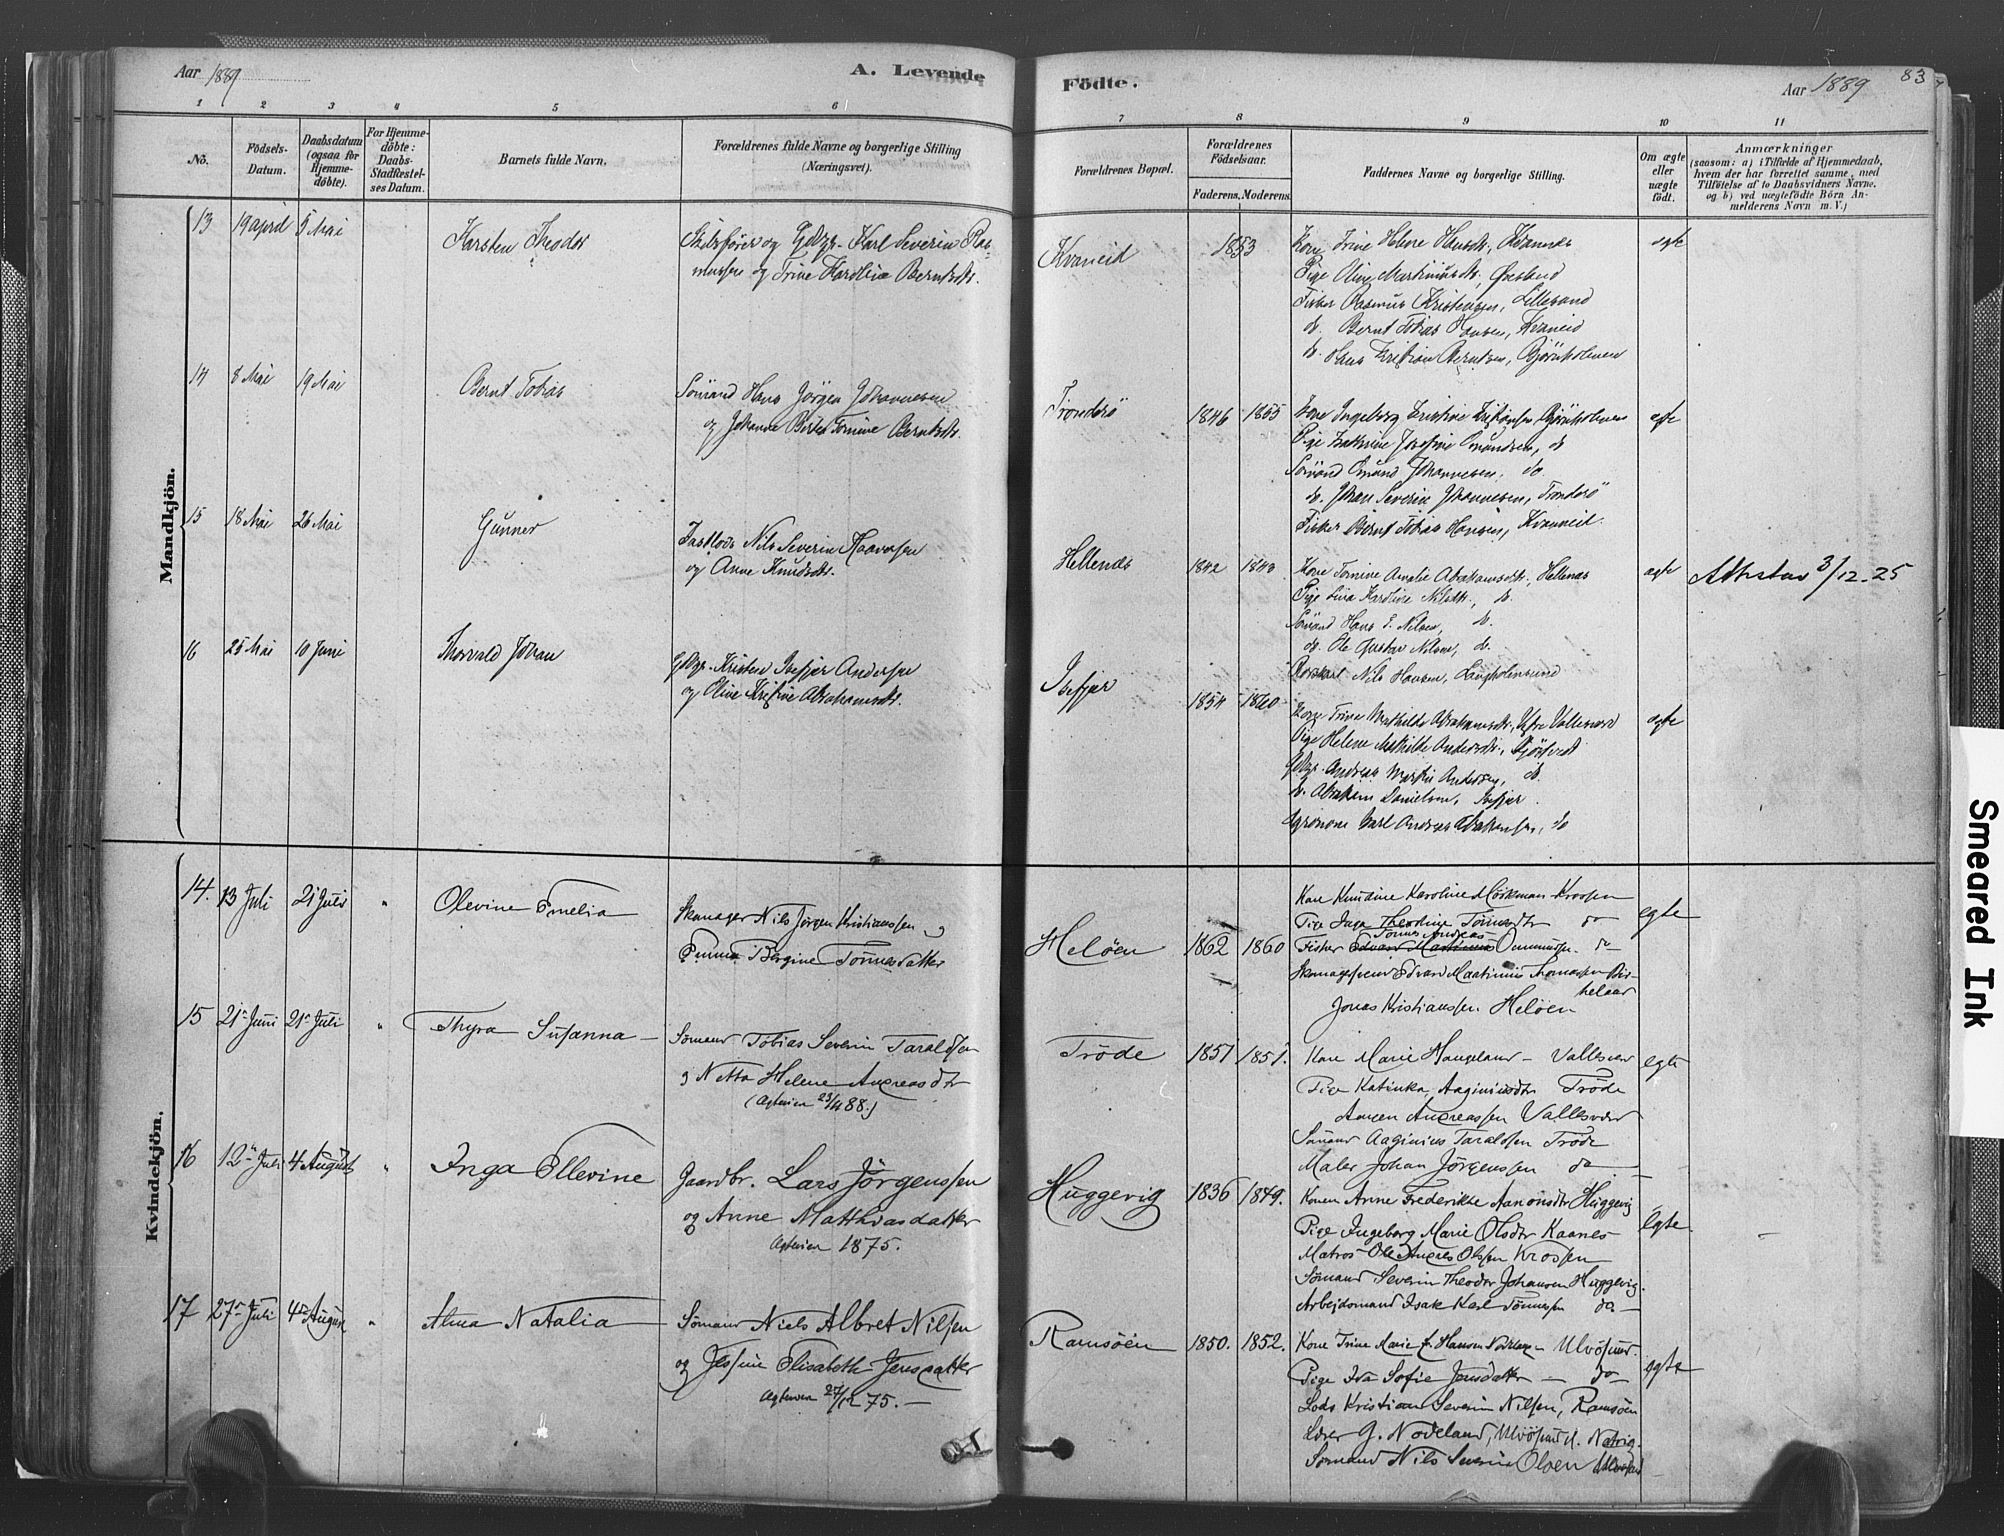 Aar 1889
A. Levende
Födte.
Aar 1889
83
1 2 3 4 5 6 7 8 9 10 11
No.
Födsels-
Datum.
Daabsdatum
(ogsaa for
Hjemme-
döbte).
For Hjemme-
döbte:
Daabs-
Stadfæstel-
ses Datum.
Barnets fulde Navn.
Forældrenes fulde Navne og borgerlige Stilling
(Næringsvei).
Forældrenes Bopæl.
Forældrenes
Födselsaar.
Faderens. Moderens.
Faddernes Navne og borgerlige Stilling.
Om ægte
eller
uægte
födt.
Anmærkninger
(saasom: a) i Tilfælde af Hjemmedaab,
hvem der har forrettet samme, med
Tilföielse af to Daabsvidners Navne.
og b) ved uægtefödte Börn An-
melderens Navn m. V.)
Mandkjön.
13 19 april 5 Mai
Karsten Theodor
Skibsfører og Gdbgr. Karl Severin Ras-
mussen og Trine Karoline Berntsdtr.
Kvaneid
1853
Kone Trine Helene Hansdtr.
Pige Oline Martinusdtr.
Fisker Rasmus Kristensen, Lillesand
do. Bernt Tobias Hansen, Kvaneid
do. Hans Kristian Berntsen, Bjørnholmen
ægte
14 8 Mai 19 Mai
Bernt Tobias
Sömand Hans Jörgen Johannesen
og Johanne Berte Tomine Berntsdtr.
Trondsö
1846 1855
Kone Ingeborg Kristine Bjørnholmen
Pige Kathrine Josefine Omundsen, do
Sömand Omund Johannesen, do.
do. Johan Severin Johannesen, Trondsö
Fisker Bernt Tobias Hansen, Kvaneid.
ægte
15 18 Mai 26 Mai
Gunner
Fastlods Nils Severin Haavorsen
og Anne Knudsdtr.
Hellenes
1842 1843
Kone Tomine Amalie Abrahamsdtr., Hellenes
Pige Lina Karoline Nilsdtr., do.
Sömand Hans E. Nilsen, do.
do. Ole Gustav Nilsen, do.
Nils Hansen, Langholmsund
ægte
Attestav 3/12-25
16 25 Mai 10 Juni
Thorvald Johan
Gdbgr. Kristen Isefjær Andersen
og Oline Kristine Abrahamsdtr.
Isefjær
1854 1860
Kone Trine Mathilde Abrahamsdtr. Vallesverd
Pige Helene Mathilde Andersdtr.
Gdbgr. Andreas Martin Andersen, do.
do. Abraham Danielsen, Isefjær.
Agronom Karl Andreas Abrahamsen, do
ægte
Kvindekjön.
14. 13 Juli 21 Juli "
Olevine Emelia
Skomager Nils Jørgen Kristianssen og
Emma Bergine Tönnesdatter
Heløen
1862 1860
Kone Knudine Karoline Mörkman Krossen
Pige Inga Theodine Tönnesdtr do
Tönnes Andreas
Fisker Edvard Martinius Ommundsen. do
Skomagersvend Edvard Martinius Thomassen
Jonas Kristianssen Heløen
egte
15 21de Juni 21de Juli "
Thyra Susanna —
Sømand Tobias Severin Taraldsen
og Netta Helene Andreasdtr
(Ægteviet 23/4 88.)
Trøde
1851 1851.
Kone Marie Haugeland — Vallesverd
Pige Katinka Aaginiusdtr Trøde
Anreassen Vallesverd
Sømand Aaginius Taraldsen Trøde
Maler Johan Jörgenssen do —
egte
16 12te Juli 4 August "
Inga Ellevine
Gaardbr. Lars Jörgenssen
og Anne Matthiasdatter
Ægteviet 1875.
Huggevig
1836 1849.
Konen Anne Frederikke Aanonsdtr Huggevig
Pige Ingeborg Marie Olsdtr Kaanes
Matros Ole Andreas Olssen Krossen
Sømand Severin Theodor Johansen Huggevig.
Arbejdsmand Isak Karl Tönnessen do. —
Egte
17 27de Juli 4de August "
Alma Natalia
Sømand Niels Albret Nilsen
og Jessine Elisabeth Jensdatter
Ægteviet 27/12 75. —
Ramsöen
1850. 1852.
Kone Trine Marie E. Hansen — Ulvösund.
Pige Ida Sofie Jensdatter — do —
Lods Kristian Severin Nilsen, Ramsøen
Lærer G. Nodeland, Ulvösund
Sømand Nils Severin Olsen Ulvösund
egte
Smeared Ink